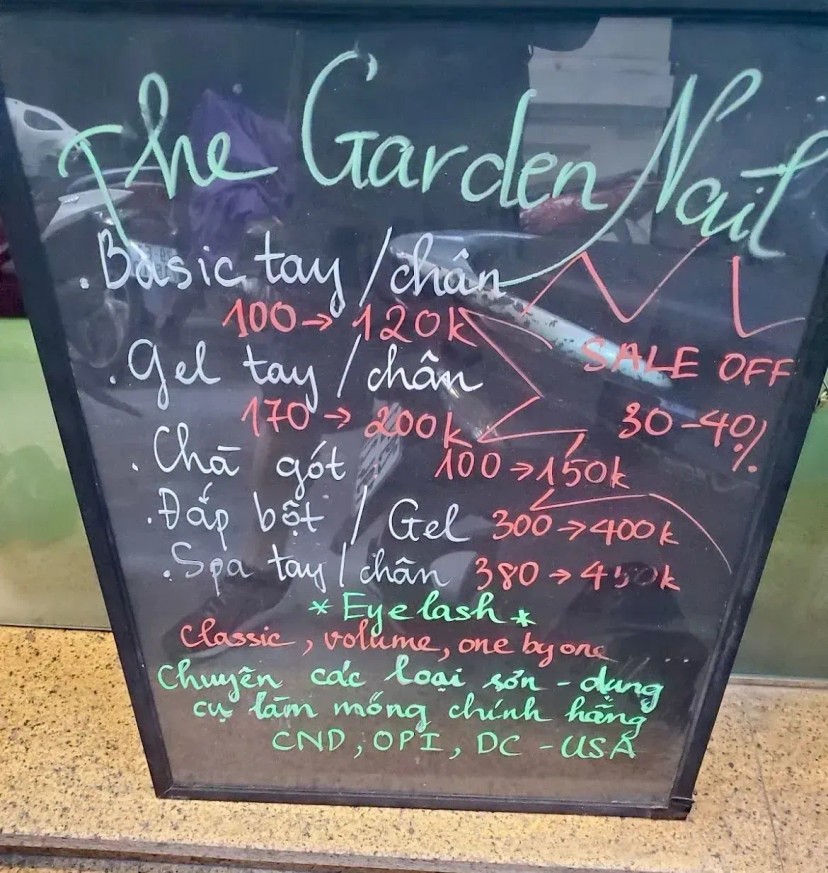 The Garden Nail
. Basic tay / chân
100 → 120k
SALE OFF
. Gel tay / chân
170 → 200k
30-40%
. Chà gót 100 → 150k
. Đắp bột / Gel 300 → 400k
. Spa tay / chân 380 → 450k
* Eyelash *
Classic, volume, one by one ...
Chuyên các loại sơn - dụng
cụ làm móng chính hãng
CND, OPI, DC - USA